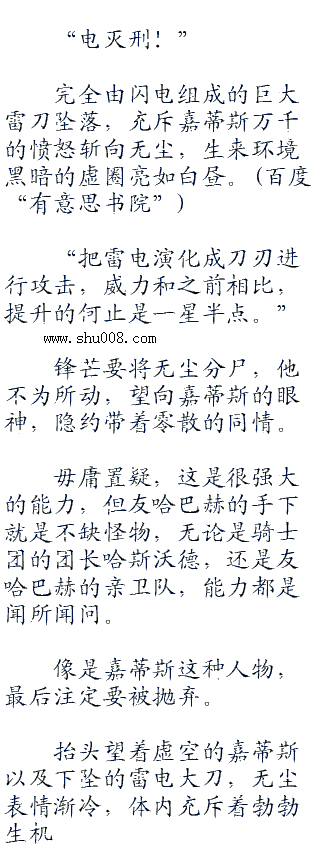 “电灭刑！”
完全由闪电组成的巨大
雷刀坠落，充斥嘉蒂斯万千
的愤怒斩向无尘，生来环境
黑暗的虚圈亮如白昼。(百度
“有意思书院”)
“把雷电演化成刀刃进
行攻击，威力和之前相比，
提升的何止是一星半点。”
www.shu008.com
锋芒要将无尘分尸，他
不为所动，望向嘉蒂斯的眼
神，隐约带着零散的同情。
毋庸置疑，这是很强大
的能力，但友哈巴赫的手下
就是不缺怪物，无论是骑士
团的团长哈斯沃德，还是友
哈巴赫的亲卫队，能力都是
闻所闻问。
像是嘉蒂斯这种人物，
最后注定要被抛弃。
抬头望着虚空的嘉蒂斯
以及下坠的雷电大刀，无尘
表情渐冷，体内充斥着勃勃
生机